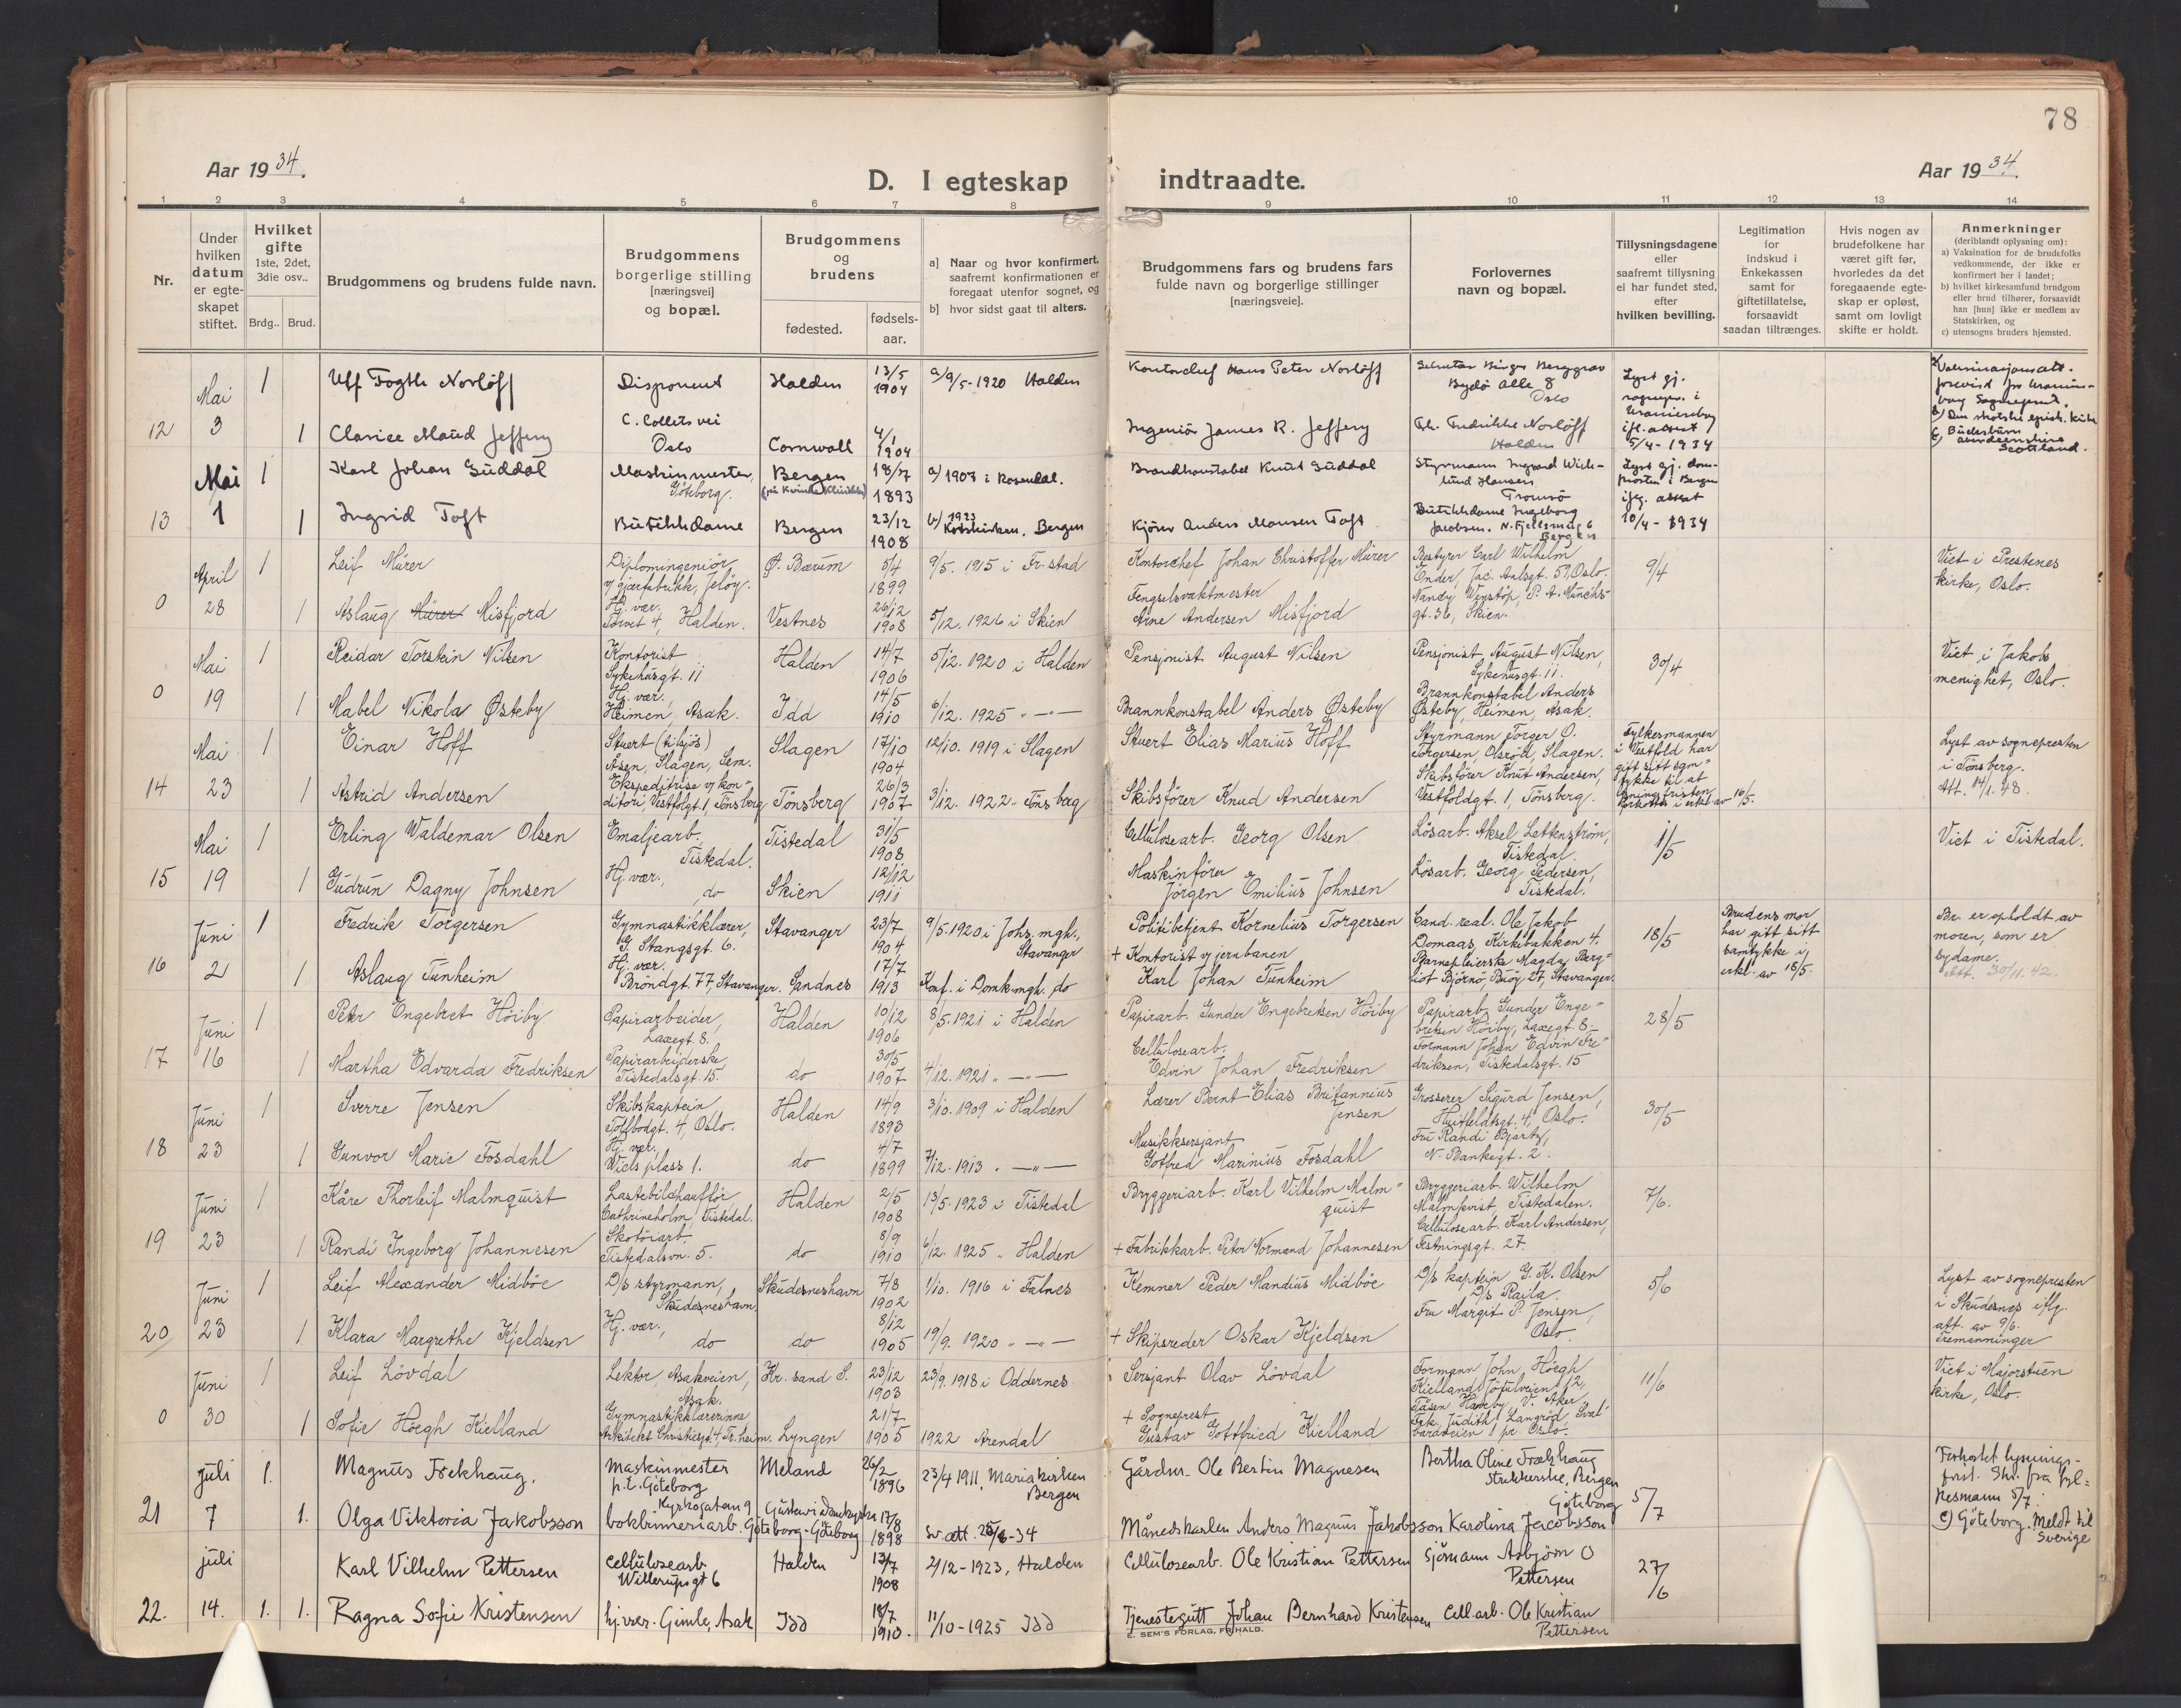 78
Aar 1934.
D. I egteskap indtraadte.
Aar 1934.
1 2 3 4 5 6 7 8 9 10 11 12 13 14
Nr.
Under hvilken datum er egteskapet stiftet.
Hvilket gifte 1ste, 2det, 3die osv..
Brdg.. Brud.
Brudgommens og brudens fulde navn.
Brudgommens borgerlige stilling [næringsvei] og bopæl.
Brudgommens og brudens
fødested.
fødsels-aar.
a] Naar og hvor konfirmert, saafremt konfirmationen er foregaat utenfor sognet, og
b] hvor sidst gaat til alters.
Brudgommens fars og brudens fars fulde navn og borgerlige stillinger [næringsveie].
Forlovernes navn og bopæl.
Tillysningsdagene eller saafremt tillysning ei har fundet sted, efter hvilken bevilling.
Legitimation for indskud i Enkekassen samt for giftetillatelse, forsaavidt saadan tiltrænges.
Hvis nogen av brudefolkene har været gift før, hvorledes da det foregaaende egteskap er opløst, samt om lovligt skifte er holdt.
Anmerkninger (deriblandt oplysning om):
a) Vaksination for de brudefolks vedkommende, der ikke er konfirmert her i landet;
b) hvilket kirkesamfund brudgom eller brud tilhører, forsaavidt han [hun] ikke er medlem av Statskirken, og
c) utensogns bruders hjemsted.
12 Mai 3
1 Ulf Fogth Norløff Disponent Halden 13/5 1904 a/9/5-1920 Halden
Kontorchef Hans Peter Norløff
Bygdö Alle 8 Oslo
1 Clarice Maud Jeffery C. Collets vei Oslo Cornwall 4/1 1904
Ingeniör James R. Jeffery
Halden
5/4-1934
Scottland.
13 Mai 1
1 Karl Johan Guddal Maskinmester, Göteborg. Bergen 18/7 1893 a/1907 i Rosendal.
Brandkonstabel Knut Guddal
Tromsö
1 Ingrid Toft Butikkdame Bergen 23/12 1908 b/1923 Korskirken. Bergen
Kjörer Anders Monsen Toft
Butikkdame Ingeborg Jacobsen. Bergen
10/4-1934
0 April 28
1 Leif Mürer Diplomingeniör v/gjærfabrikk, Jelöy. Ø. Bærum 5/4 1899 9/5. 1915 i Fr.stad
Kontorchef Johan Christoffer Mürer
Bestyrer Carl Wilhelm Onder, Jac. Aalsgt. 59, Oslo.
9/4
Viet i Prestenes kirke, Oslo.
1 Aslaug Mürer Misfjord Hj. vær. Torvet 4, Halden. Vestnes 26/12 1908 5/12. 1926 i Skien
Fengselsvaktmester Arne Andersen Misfjord
P. A. Münchsgt. 36, Skien.
0 Mai 19
1 Reidar Torstein Nilsen Kontorist Sykehusgt. 11 Halden 14/7 1906 5/12. 1920 i Halden
Pensjonist August Nilsen
Pensjonist August Nilsen, Sykehusgt. 11.
30/4
Viet i Jakobs menighet, Oslo.
1 Mabel Nikola Østeby Hj. vær. Heimen, Asak. Idd 14/5 1910 6/12. 1925 " —"—
Brannkonstabel Anders Østeby
Brannkonstabel Anders Østeby, Heimen, Asak.
14 Mai 23
1 Einar Hoff Stuert (tilsjös) Åsen, Slagen, Sem. Slagen 17/10 1904 12/10. 1919 i Slagen
Stuert Elias Marius Hoff
Styrmann Torger O. Torgersen, Olsröd, Slagen.
Fylkesmannen i Vestfold har gitt sitt samtykke til at lysningsfristen forkortes i erkl. av 16/5.
Lyst av sognepresten i Tönsberg. Att. 14/1. 48.
1 Astrid Andersen Ekspeditrise v/ konditori, Vestfoldgt. 1, Tönsberg Tönsberg 26/3 1907 3/12. 1922 " Tönsberg
Skibsförer Knud Andersen
Skibsförer Knut Andersen, Vestfoldgt. 1, Tönsberg.
15 Mai 19
1 Erling Waldemar Olsen Emaljearb., Tistedal. Tistedal 31/5 1908
Cellulosearb. Georg Olsen
Lösarb. Aksel Lettenström, Tistedal.
1/5
Viet i Tistedal.
1 Gudrun Dagny Johnsen Hj. vær., do Skien 12/12 1911
Maskinförer Jörgen Emilius Johnsen
Lösarb. Georg Pedersen, Tistedal.
16 Juni 2
1 Fredrik Torgersen Gymnastikklærer, G. Stangsgt. 6. Stavanger 23/7 1904 9/5. 1920 i Johs. mgh., Stavanger
Politibetjent Kornelius Torgersen
Cand. real. Ole Jakob Domaas, Kirkebakken 4.
18/5
Brudens mor har gitt sitt samtykke i erkl. av 18/5.
Br. er opholdt av moren, som er sydame. Att. 30/11. 42.
1 Aslaug Tunheim Hj. vær. Bröndgt. 77, Stavanger. Sandnes 17/7 1913 Konf. i Domk. mgh. do
+ Kontorist v/ jernbanen Karl Johan Tunheim
Barnepleierske Magda Bergliot Björnö, Buöy 27, Stavanger.
17 Juni 16
1 Peter Engebret Höiby Papirarbeider, Laxegt. 8. Halden 10/12 1906 8/5. 1921 i Halden
Papirarb. Gunder Engebretsen Höiby
Papirarb. Gunder Engebretsen Höiby, Laxegt. 8.
28/5
1 Martha Edvarda Fredriksen Papirarbeiderske Tistedalsgt. 15. do 30/5 1907 4/12. 1921 " —"—
Cellulosearb. Edvin Johan Fredriksen
Formann Johan Edvin Fredriksen, Tistedalsgt. 15
18 Juni 23
1 Sverre Jensen Skibskaptein Tollbodgt. 4, Oslo. Halden 14/9 1893 3/10. 1909 i Halden
Lærer Bernt Elias Britannius Jensen
Grosserer Sigurd Jensen, Huitfeldtsgt. 4, Oslo.
30/5
1 Gunvor Marie Fosdahl Hj. vær. Wiels plass 1. do 4/7 1899 7/12. 1913 " —"—
Musikksersjant Gotfred Marinius Fosdahl
Fru Randi Bjartz, N. Bankegt. 2.
19 Juni 23
1 Kåre Thorleif Malmquist Lastebilchauffør Cathrineholm, Tistedal. Halden 2/5 1908 13/5. 1923 i Tistedal
Bryggeriarb. Karl Vilhelm Malmquist
Bryggeriarb. Wilhelm Malmqvist, Tistedalen.
7/6.
1 Randi Ingeborg Johannesen Skotöiarb. Tistedalsvn. 5. do 8/9 1910 6/12. 1925 " Halden
+ Fabrikkarb. Peter Normand Johannesen
Cellulosearb. Karl Andersen, Festningsgt. 27.
20 Juni 23
1 Leif Alexander Midböe D/s styrmann, Skudesneshavn. Skudesneshavn 7/8 1902 1/10. 1916 i Falnes
Kemner Peder Mandius Midböe
D/s kaptein G. K. Olsen D/s Raila.
5/6
Lyst av sognepresten i Skudesnes iflg. att. av 9/6. Tremenninger
1 Klara Margrethe Kjeldsen Hj. vær., do do 8/12 1905 19/9. 1920 " —"—
+ Skipsreder Oskar Kjeldsen
Fru Margit P. Jensen, Oslo.
0 Juni 30
1 Leif Lövdal Lektor, Asakveien, Asak. Kr. sand S. 23/12 1903 23/9. 1918 i Oddernes
Sersjant Olav Lövdal
Formann John Höegh Kielland, Jötulveien 12, Tåsen Haveby, V. Aker
11/6
Viet i Majorstuen kirke, Oslo.
1 Sofie Höegh Kielland Gymnastikklærerinne Arkitekt Christiesgt. 4, Tr.heim. Lyngen 21/7 1905 1922 Arendal
+ Sogneprest Gustav Gottfried Kielland
Frk. Judith Langröd, Svalbardveien 1 pr. Oslo.
21 juli 7
1. Magnus Frekhaug. Maskinmester p.t. Göteborg Meland 26/2 1896 23/4 1911, Mariakirken Bergen
Gårdm. Ole Bertin Magnesen
Bertha Oline Frekhaug Strikkerske, Bergen
5/7
Forkortet lysningsfrist. Skr. fra fylkesmann 5/7.
c) Göteborg. Meldt til Sverige
1. Olga Viktoria Jakobsson Kyrkogatan 9 bokbinneriarb. Göteborg Göteborg 17/8 1898 Sv. att. 25/6-34
Månedskarlen Anders Magnus Jakobsson
Göteborg Karolina Jacobsson
22. juli 14.
1. Karl Vilhelm Pettersen Cellulosearb Willerupsgt 6 Halden 13/7 1908 2/12-1923, Halden
Cellulosearb. Ole Kristian Pettersen
Sjömann Asbjörn O Pettersen
27/6
1. Ragna Sofie Kristensen hj.vær. Gimle, Asak Idd 18/7 1910. 11/10-1925 Idd
Tjenestegutt Johan Bernhard Kristensen
Cell.arb. Ole Kristian Pettersen
E. SEM'S FORLAG, FR.HALD.